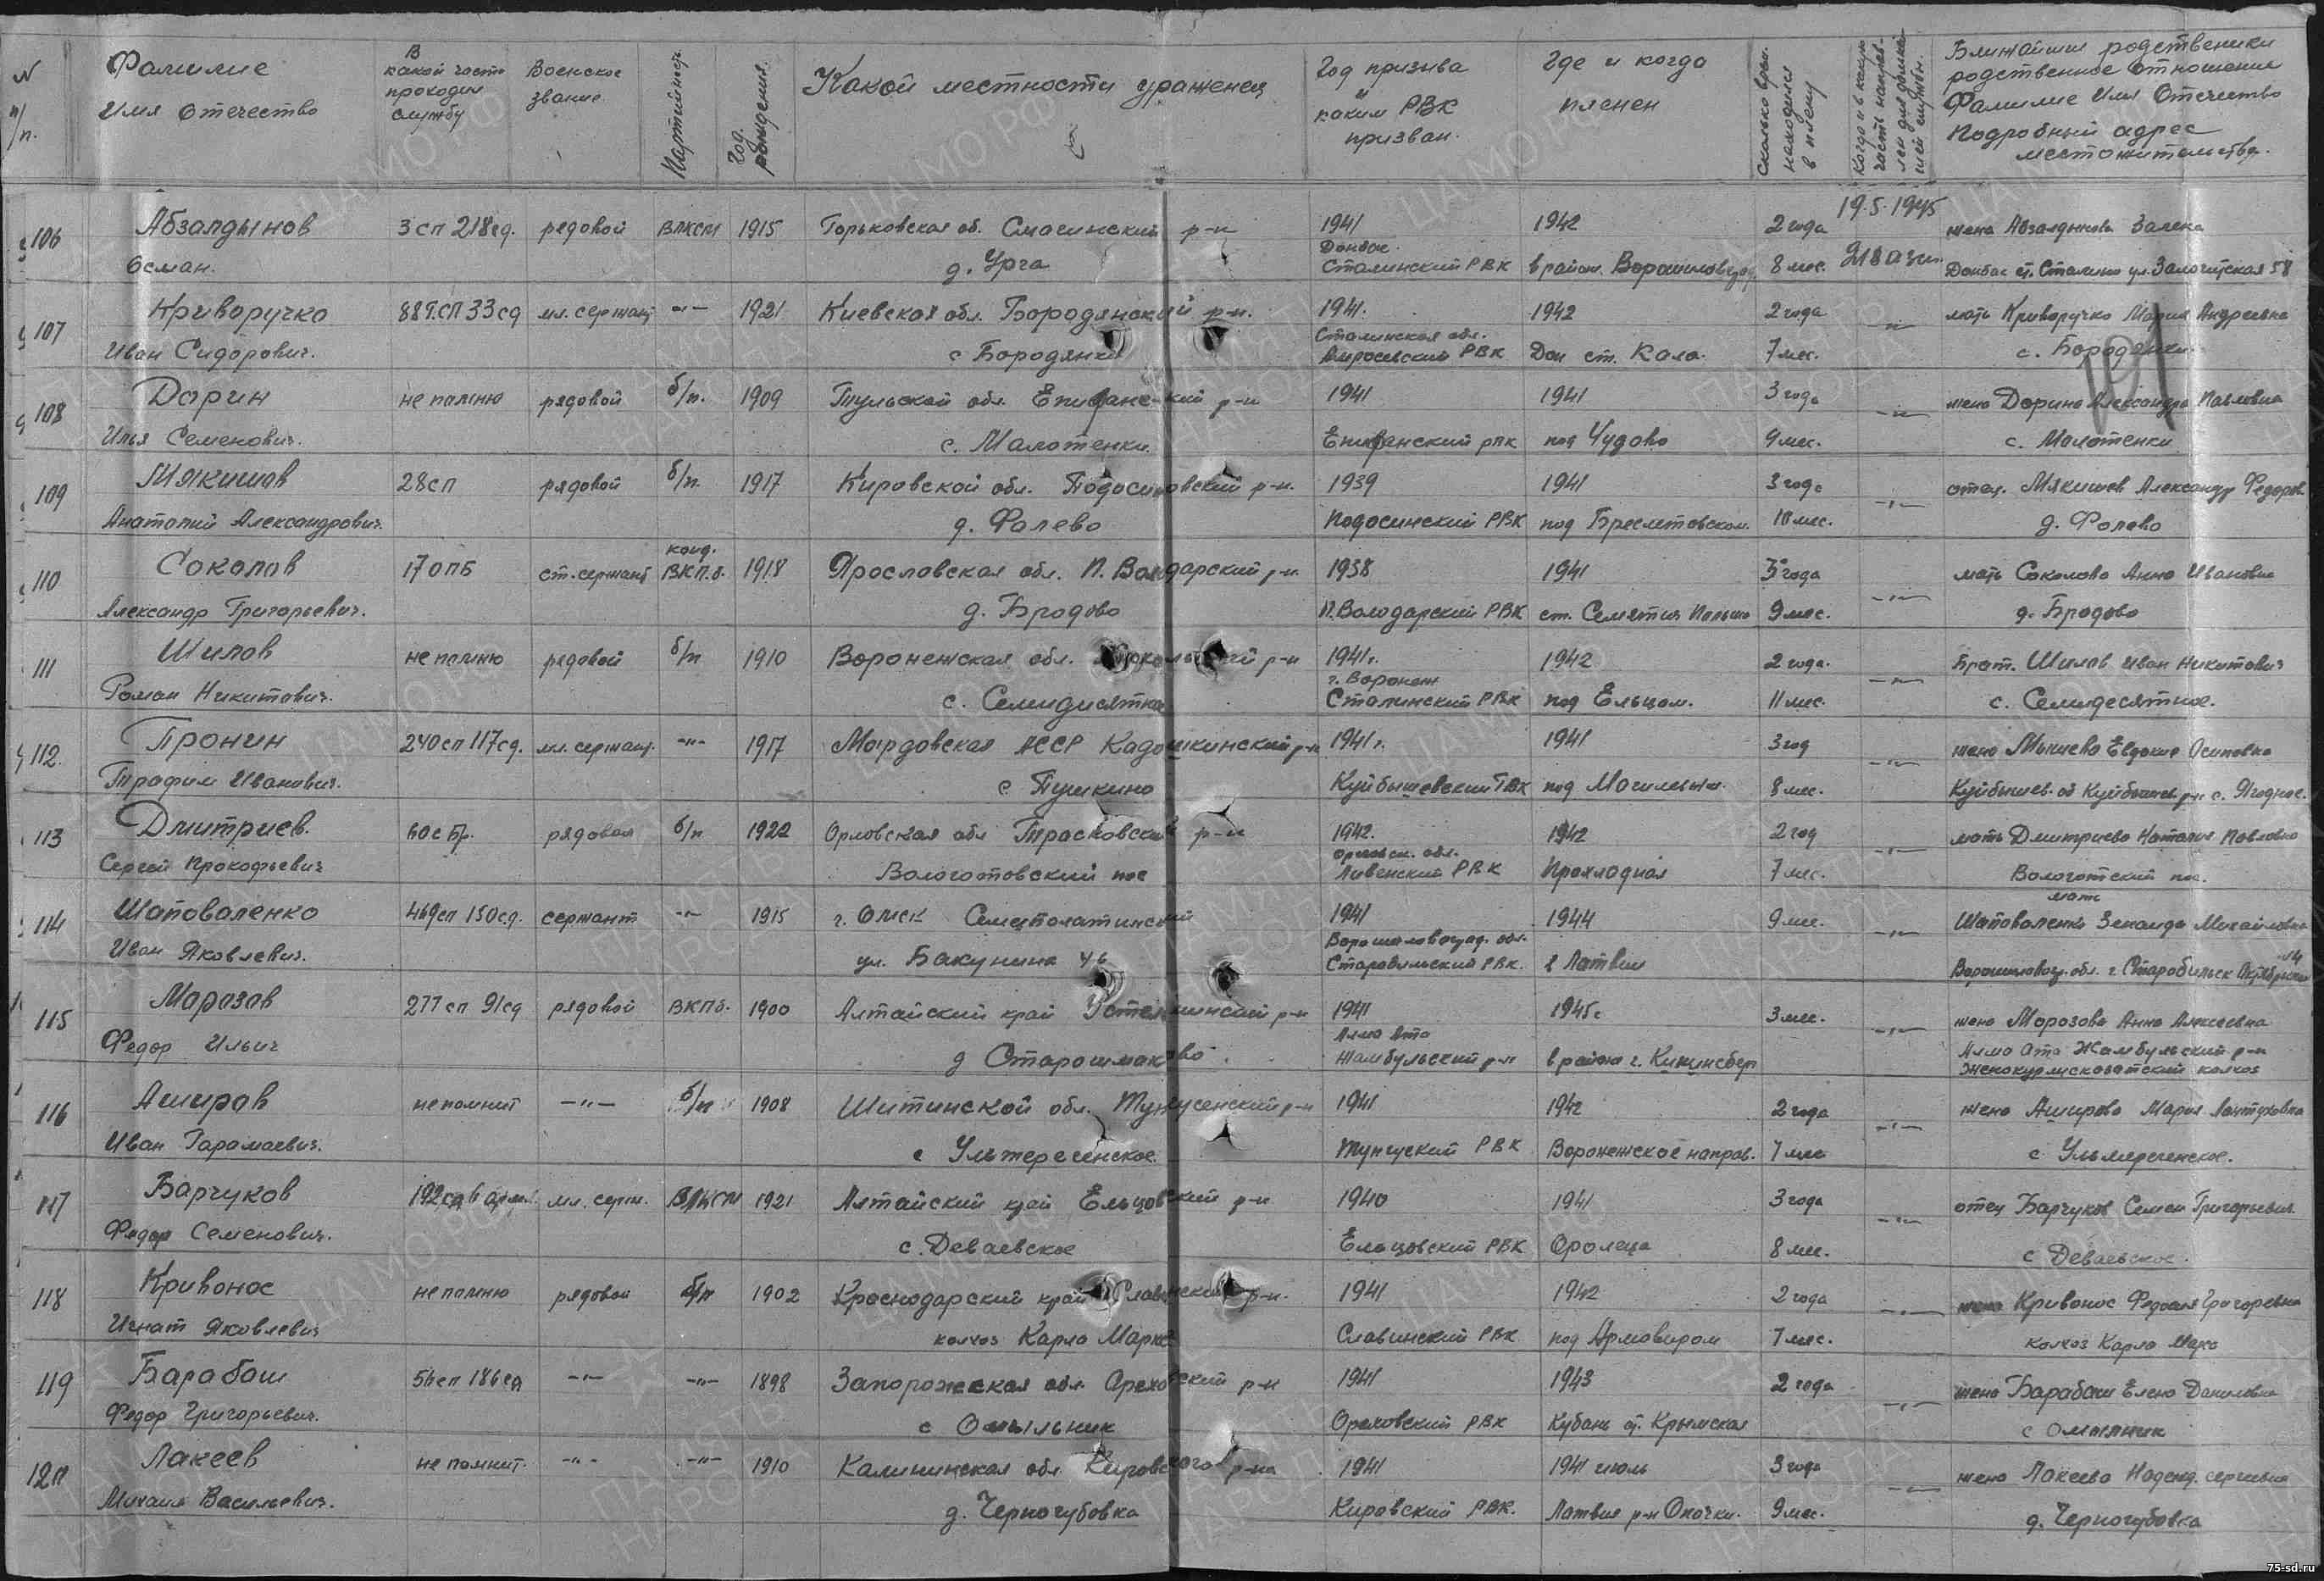 N п/п.
Фамилие Имя Отечество
В какой части проходил службу
Воинское звание
Партийность
Год рождения.
Какой местности уроженец
Год призыва и каким РВК призван.
Где и когда пленен
Сколько врем. находился в плену
Когда и в какую часть направлен для дальнейшей службы.
Ближайшие родственики родственное отношение Фамилие Имя Отчество Подробный адрес местожительства.
106 Абзалдынов 3 сп 218 сд. редовой ВЛКСМ 1915 Горьковская об. р-н 1941 1942 2 года 19.5.1945 жена
Осман. д. Урга Донбас Сталинский РВК в район. 8 мес. Донбас ст. Сталино ул. 58
107 Криворучко 889 сп 33 сд мл. сержант -"- 1921 Киевская обл. Бородянский р-н. 1941. 1942 2 года -"- мать Криворучко Мария Андреевна
Иван Сидорович. с Бородянки Сталинская обл. РВК Дон ст. Кала. 7 мес. с. Бородянки
191
108 Дарин не помню рядовой б/п. 1909 Тульской обл. Епифанский р-н 1941 1941 3 года -"- жена Дарина Александра Павловна
Илья Семенович. с. Малотенки. Епифанский рвк под Чудово 9 мес. с. Малотенки
109 Мякишов 28 сп рядовой б/п. 1917 Кировской обл. Подосиновский р-н. 1939 1941 3 года -"- отец. Мякишев Александр Федоров.
Анатолий Александрович. д. Фалево Подосинский РВК под 10 мес. д. Фалево
110 Соколов 17 ОПБ ст. сержант канд. ВКП.б. 1918 Ярославская обл. П. Володарский р-н. 1938 1941 3 года -"- мать Соколова Анна Ивановна
Александр Григорьевич. д. Бродово П. Володарский РВК ст. Семятич Польша 9 мес. д. Бродово
111 Шилов не помню редовой б/п 1910 Воронежская обл. р-н 1941 г. 1942 2 года. -"- Брат. Шилов Иван Никитович
Роман Никитович. с. Семидисятное г. Воронеж Сталинский РВК под Ельцом. 11 мес. с. Семидесятное.
112. Пронин 240 сп 117 сд. мл. сержант. -"- 1917 Мордовская АССР Кадошкинский р-н 1941 г. 1941 3 год -"- жена Евдокия Осиповна
Трофим Иванович. с Пушкино Куйбышевский РВК под 8 мес. Куйбышев. об Куйбышев. р-н с. Ягодное.
113 Дмитриев. 60 с Бр. рядовой б/п 1922 Орловская обл р-н 1942. 1942 2 год -"- мать Дмитриева Наталия Павловна
Сергей Прокофьевич Вологотовский пос Орловск. обл. Ливенский РВК Прохладная 7 мес. пос.
114 Шаповаленко 469 сп 150 сд. сержант -"- 1915 г. Омск 1941 1944 9 мес. -"- мать Шаповаленко Зенаида Михайловна
Иван Яковлевич. ул. Бакунина 46 Ворошиловград. обл. Старобельский РВК. в Латвии Ворошиловгр. обл. г Старобильск 14
115 Марозов 277 сп 91 сд рядовой ВКПб. 1900 Алтайский край р-н 1941 1945 г 3 мес. -"- жена Морозова Анна Алексеевна
Федор Ильич д Старошмаково. Алма Ата Жамбульский р-н в районе г. Кинингсберг Алма Ата Жамбульский р-н колхоз
116 Аширов не помнит -"- б/п 1908 Шитинской обл. р-н 1941 1942 2 года -"- жена Аширова Мария
Иван Гарамаевич. с РВК Воронежское направ. 7 мес с
117 Барчуков 192 сд 6 армия. мл. серж. ВЛКСМ 1921 Алтайский край Ельцовский р-н 1940 1941 3 года -"- отец Барчуков Семен Григорьевич
Федор Семенович. с. Деваевское Ельцовский РВК 8 мес. с Деваевское.
118 Кривонос не помню рядовой б/п 1902 Краснодарский край Славинский р-н. 1941 1942 2 года -"- жена Кривонос Федосия Григоревна
Игнат Яковлевич колхоз Карло Маркс Славинский РВК под Армавиром 7 мес. колхоз Карло Маркс
119 Барабаш 56 сп 186 сд -"- -"- 1898 Запорожская обл. Ореховский р-н 1941 1943 2 года -"- жена Барабаш Елена Даниловна
Федор Григорьевич. с Омыльник Ореховский РВК Кубань ст. Крымская с Омыльник
120 Лакеев не помнит. -"- -"- 1910 Калининская обл. Кировского р-на 1941 1941 июль 3 года -"- жена Лакеева Надежд. сергеевна
Михаил Васильевич. д. Черногубовка Кировский РВК. Латвия р-н Опочки. 9 мес. д. Черногубовка
75-sd.ru